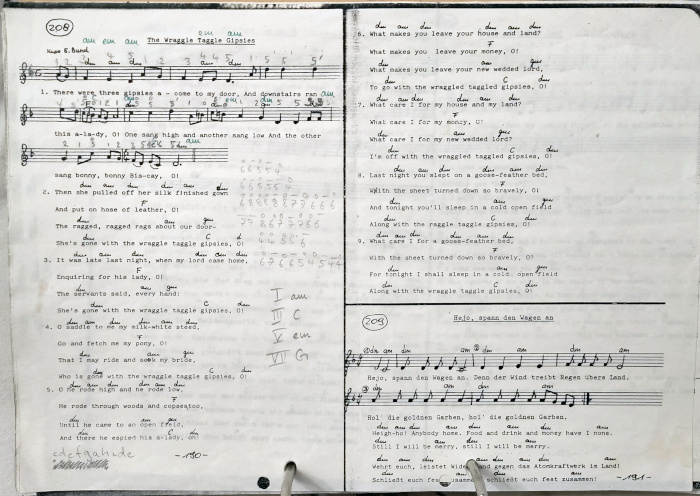 208
am em am
em am
The Wraggle Taggle Gipsies
Kapo 5. Bund
1. There were three gipsies a - come to my door, And downstairs ran
this a-la-dy, O! One sang high and another sang low And the other
sang bonny, bonny Bis-cay, O!
dm am dm am dm
2. Then she pulled off her silk finished gown
F
And put on hose of leather, O!
dm am gm
The ragged, ragged rags about our door-
dm C d
She's gone with the wraggle taggle gipsies, O!
dm am dm am dm
3. It was late last night, when my lord came home,
F
Enquiring for his lady, O!
dm am gm
The servants said, every hand:
dm C dm
She's gone with the wraggle taggle gipsies, O!
dm am dm am dm
4. O saddle to me my milk-white steed,
F
Go and fetch me my pony, O!
dm am gm
That I may ride and seek my bride,
dm C dm
Who is gone with the wraggle taggle gipsies, O!
dm am dm am dm
5. O he rode high and he rode low,
F
He rode through woods and copsestoo,
dm am gm
Until he came to an open field,
dm C dm
And there he espied his a-lady, oh!
cdefgahcde
-190-
I am
III C
V em
VII G
dm am dm am dm
6. What makes you leave your house and land?
F
What makes you leave your money, O!
dm am gm
What makes you leave your new wedded lord,
dm C dm
To go with the wraggled taggled gipsies, O!
dm am dm am dm
7. What care I for my house and my land?
F
What care I for my money, O!
dm am gm
What care I for my wedded lord?
dm C dm
I'm off with the wraggled taggled gipsies, O!
dm am dm am dm
8. Last night you slept on a goose-feather bed,
F
With the sheet turned down so bravely, O!
dm am gm
And tonight you'll sleep in a cold open field
dm C dm
Along with the raggle taggle gipsies, O!
dm am dm am dm
9. What care I for a goose-feather bed,
F
With the sheet turned down so bravely, O?
dm am gm
For tonight I shall sleep in a cold, open field
dm C dm
Along with the wraggle taggle gipsies, O!
209
Hejo, spann den Wagen an
Hejo, spann den Wagen an. Denn der Wind treibt Regen übers Land.
Hol' die goldnen Garben, hol' die goldnen Garben.
Heigh-ho! Anybody home. Food and drink and money have I none.
Still I will be merry, still I will be merry.
Wehrt euch, leistet gegen das Atomkraftwerk im Land!
Schließt euch fest schließt euch fest zusammen!
-191-